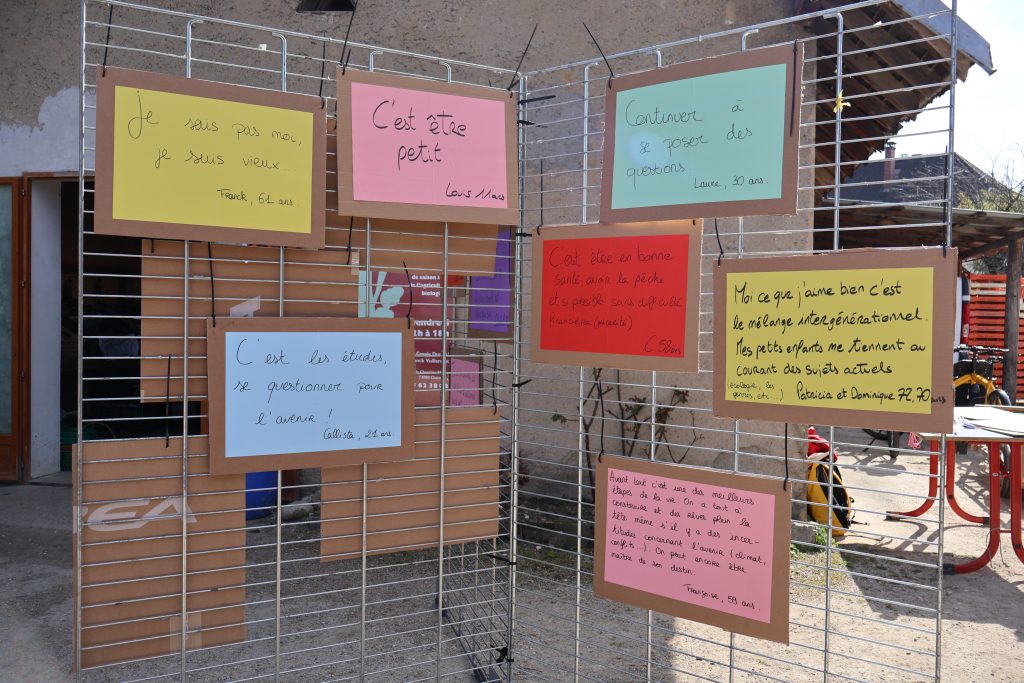 Je suis pas moi,
je suis vieux...
Franck, 61 ans.
C'est être
petit
Louis 11 ans
Continuer à
se poser des
questions.
Laure, 30 ans.
C'est être en bonne
santé, avoir la pêche
et si possible sans difficulté
financière (précarité)
C 58 ans
Moi ce que j'aime bien c'est
le mélange intergénérationnel.
Mes petits enfants me tiennent au
courant des sujets actuels
(écologie, les
genres, etc...)
Patricia et Dominique 72, 70 ans
C'est les études,
se questionner pour
l'avenir !
Callista, 21 ans.
Avant tout c'est une des meilleures
étapes de la vie. On a tout à
construire et des rêves plein la
tête même s'il y a des incer-
titudes concernant l'avenir (climat,
conflits...). On peut encore être
maître de son destin.
Françoise, 59 ans.
de saison
h à 18h